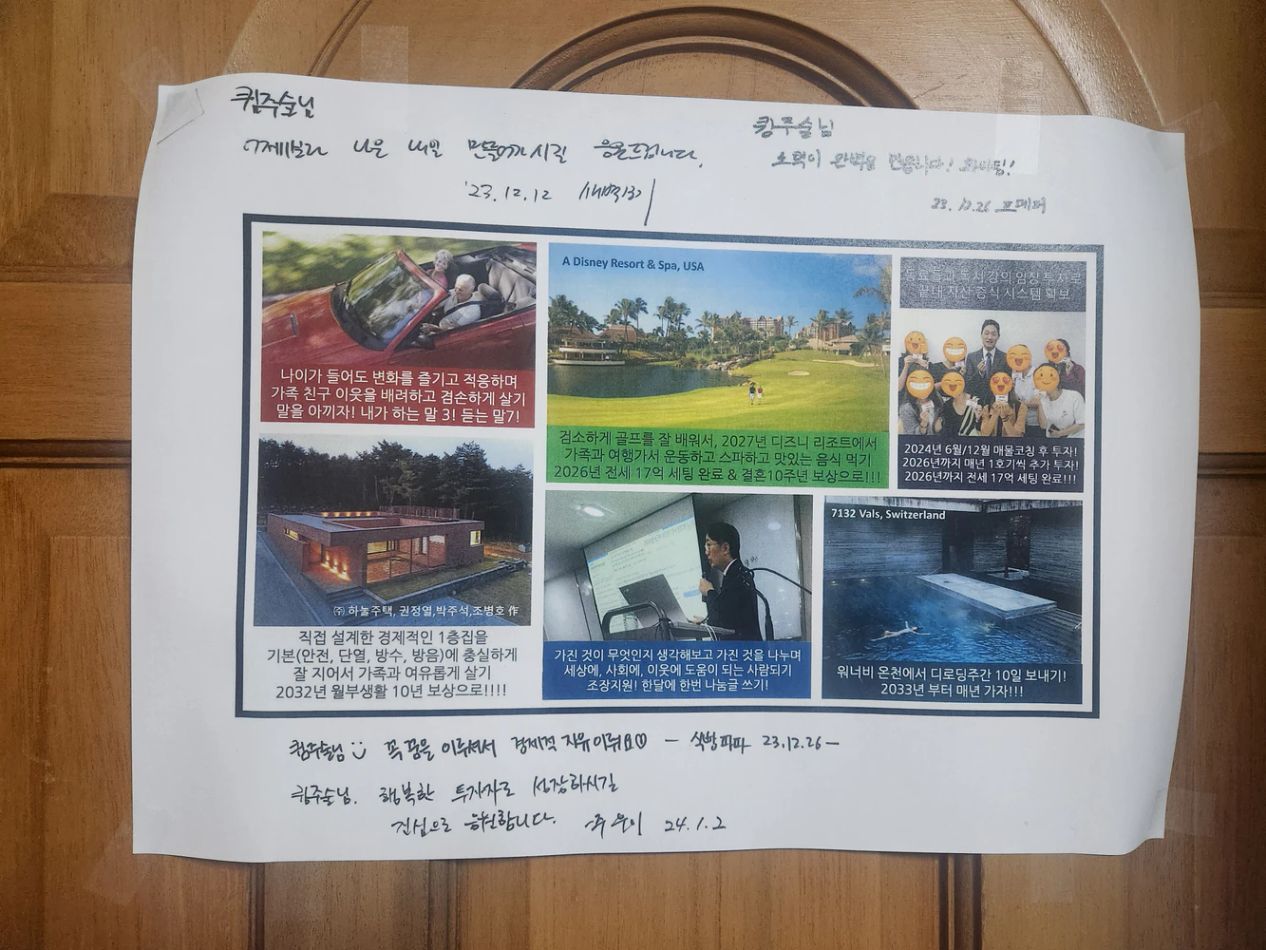 큄주술님
어제보다 나은 내일 만들어가시길 응원드립니다.
'23.12.12 새벽
큄주술님
노력이 완벽을 만듭니다! 화이팅!
23.12.26
나이가 들어도 변화를 즐기고 적응하며
가족 친구 이웃을 배려하고 겸손하게 살기
말을 아끼자! 내가 하는 말 3! 듣는 말7!
A Disney Resort & Spa, USA
검소하게 골프를 잘 배워서, 2027년 디즈니 리조트에서
가족과 여행가서 운동하고 스파하고 맛있는 음식 먹기
2026년 전세 17억 세팅 완료 & 결혼10주년 보상으로!!!
동료들과 독서 강의 임장 투자로
끝내 자산증식 시스템 확보
2024년 6월/12월 매물코칭 후 투자!
2026년까지 매년 1호기씩 추가 투자!
2026년까지 전세 17억 세팅 완료!!!
㈜ 하눌주택, 권정열,박주석,조병호 作
직접 설계한 경제적인 1층집을
기본(안전, 단열, 방수, 방음)에 충실하게
잘 지어서 가족과 여유롭게 살기
2032년 월부생활 10년 보상으로!!!!
가진 것이 무엇인지 생각해보고 가진 것을 나누며
세상에, 사회에, 이웃에 도움이 되는 사람되기
조장지원! 한달에 한번 나눔글 쓰기!
7132 Vals, Switzerland
워너비 온천에서 디로딩주간 10일 보내기!
2033년 부터 매년 가자!!!
큄주술님 꼭 꿈을 이루셔서 경제적 자유 이뤄요♡ - 식빵파파 23.12.26-
큄주술님. 행복한 투자자로 성장하시길
진심으로 응원합니다. -주우이 24.1.2